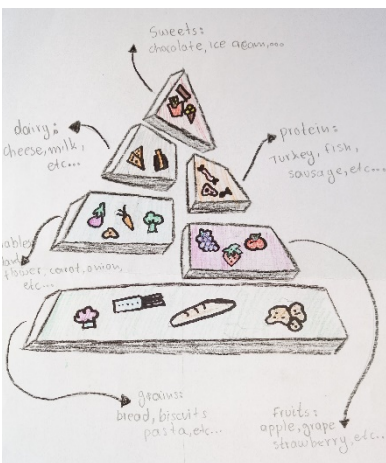 Sweets:
chocolate, ice cream,...
dairy:
cheese, milk,
etc...
protein:
Turkey, fish,
sausage, etc...
flower, carot, onion,
etc...
grains:
bread, biscuits
pasta, etc...
Fruits:
apple, grape
strawberry, etc...